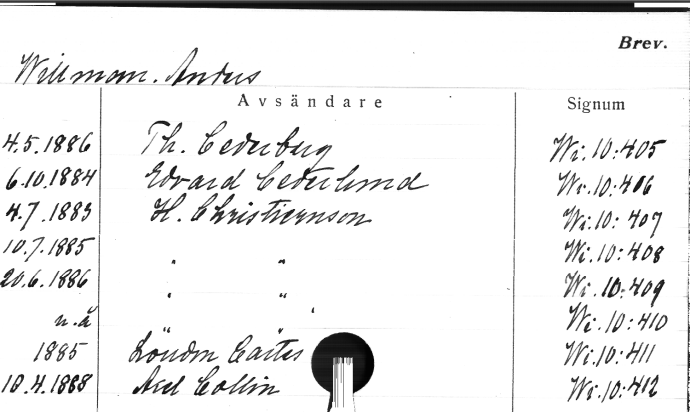 Brev.
Willman. Anders
Avsändare Signum
4.5.1886 Th. Cederberg Wi.10:405
6.10.1884 Edvard Cederlund Wi.10:406
4.7.1883 H. Christiernson Wi.10:407
10.7.1885 " " Wi.10:408
20.6.1886 " " Wi.10:409
n.å " Wi.10:410
1885 Wi.10:411
10.4.1888 Axel Collin Wi.10:412